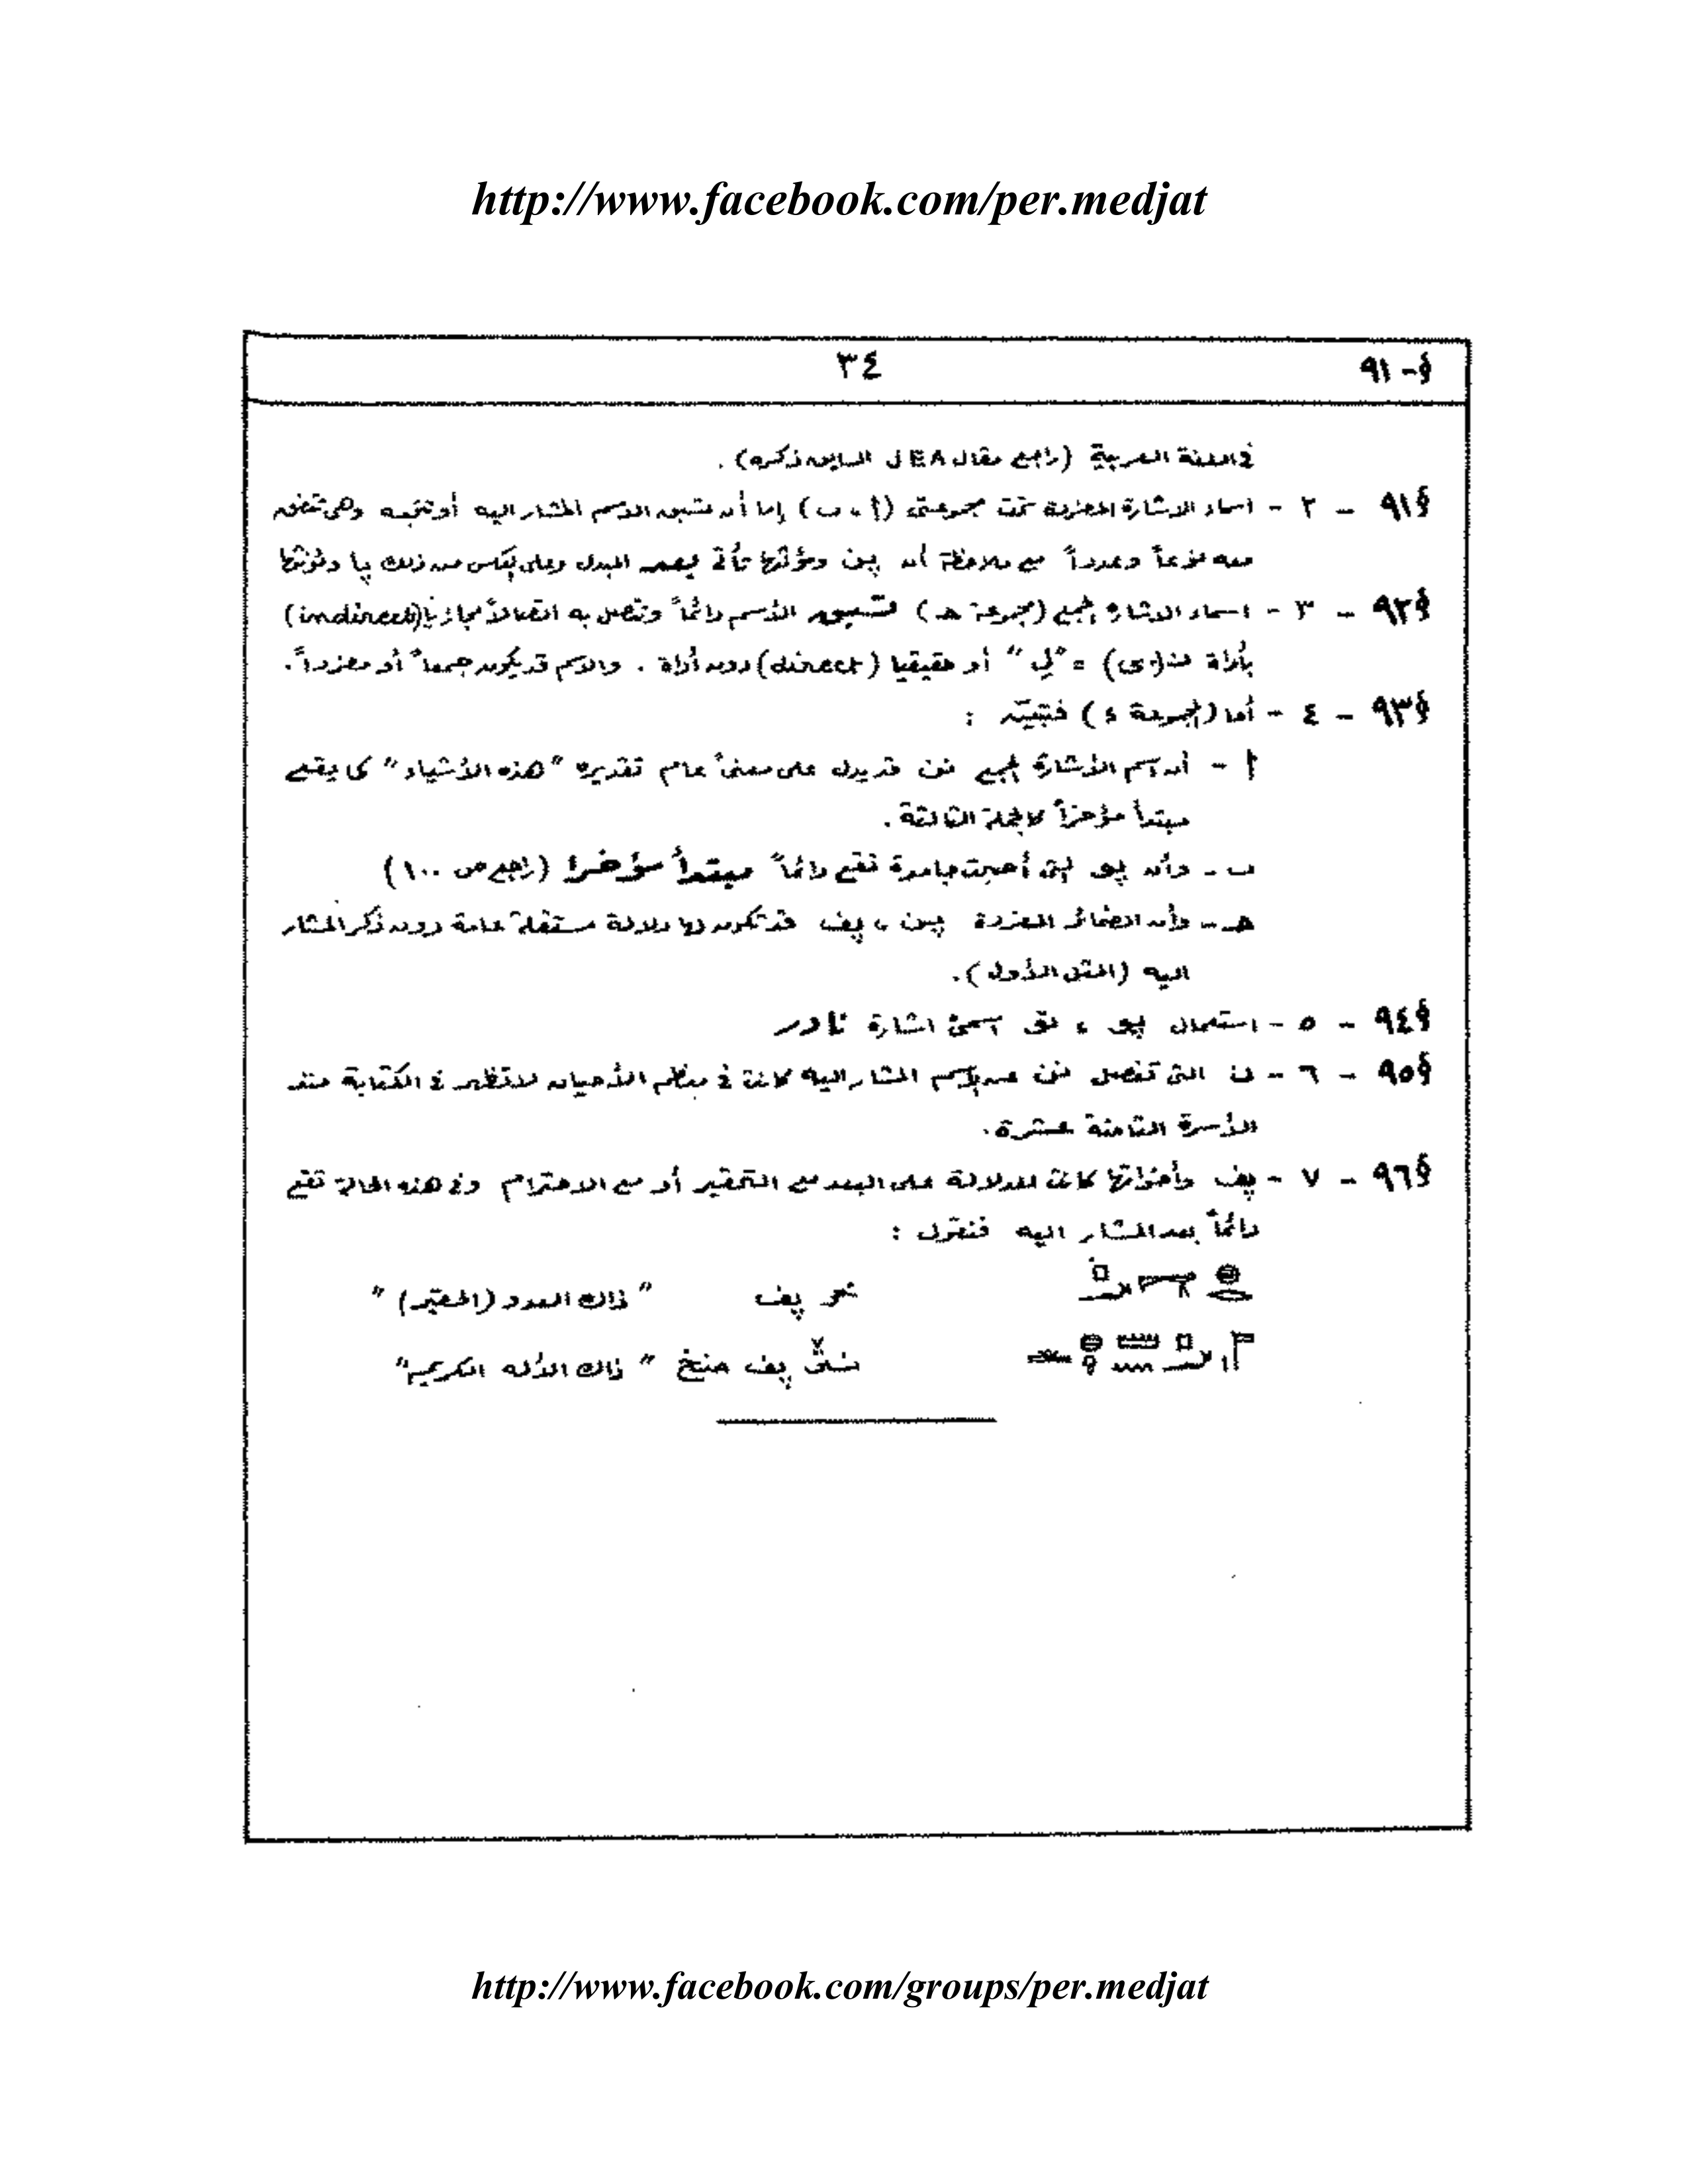 http://www.facebook.com/per.medjat
§- ٩١
٣٤
فى اللغة العربية (راجع مقال JEA السابق ذكره).
§٩١ - ٢ - اسماء الاشارة المفردة تحت مجموعتى (أ، ب) إما أن تسبق الاسم المشار اليه أو تتبعه وهى تتفق
معه نوعاً وعدداً مع ملاحظة أن پن ومؤنثها تأتى بعد المبدل وعلى العكس من ذلك پا ومؤنثها
§٩٢ - ٣ - اسماء الاشارة الجمع (مجموعة هـ) تسبق الاسم دائماً وتتصل به اتصالاً مجازياً (indirect)
بأداة ن(ى) = "لِ" أو حقيقيا (direct) دون أداة . والاسم قد يكون جمعاً أو مفرداً.
§٩٣ - ٤ - أما (المجموعة ء) فتبيّن :
أ - أن اسم الأشارة الجمع نن قد يدل على معنىً عام تقديره "هذه الأشياء" كما يقع
مبتدأ مؤخراً كالجملة الثالثة.
ب - وأن پو التى أصبحت جامدة تقع دائماً مبتدأ مؤخرا (راجع ص ١٠٠)
هـ - وأن الضمائر المفردة پن ، پف قد تكون لها دلالة مستقلة عامة دون ذكر المشار
اليه (المثل الأول).
§٩٤ - ٥ - استعمال پو ، تو اسمىْ اشارة نادر
§٩٥ - ٦ - ن التى تفصل نن عن الاسم المشار اليه كانت فى معظم الأحيان لا تظهر فى الكتابة منذ
الأسرة الثامنة عشرة.
§٩٦ - ٧ - پف وأخواتها كانت للدلالة على البعد مع التحقير أو مع الاحترام وفى هذه الحالة تقع
دائماً بعد المشار اليه فنقول :
خر پف "ذلك العدو (الحقير)"
پف منخ "ذلك الأله الكريم"
http://www.facebook.com/groups/per.medjat